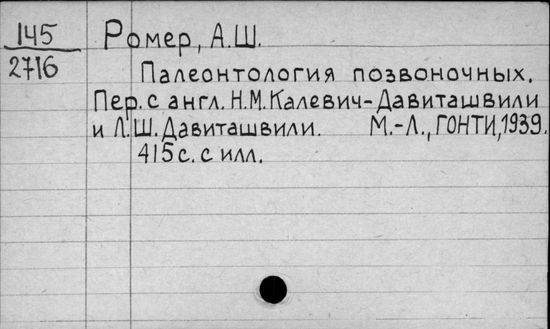 145
2716
Ромер, А.Ш.
Палеонтология позвоночных.
Пер. с англ. Н.М. Калевич-Давиташвили
и Л.Ш. Давиташвили. М.-Л., ГОНТИ, 1939.
415 с. с илл.